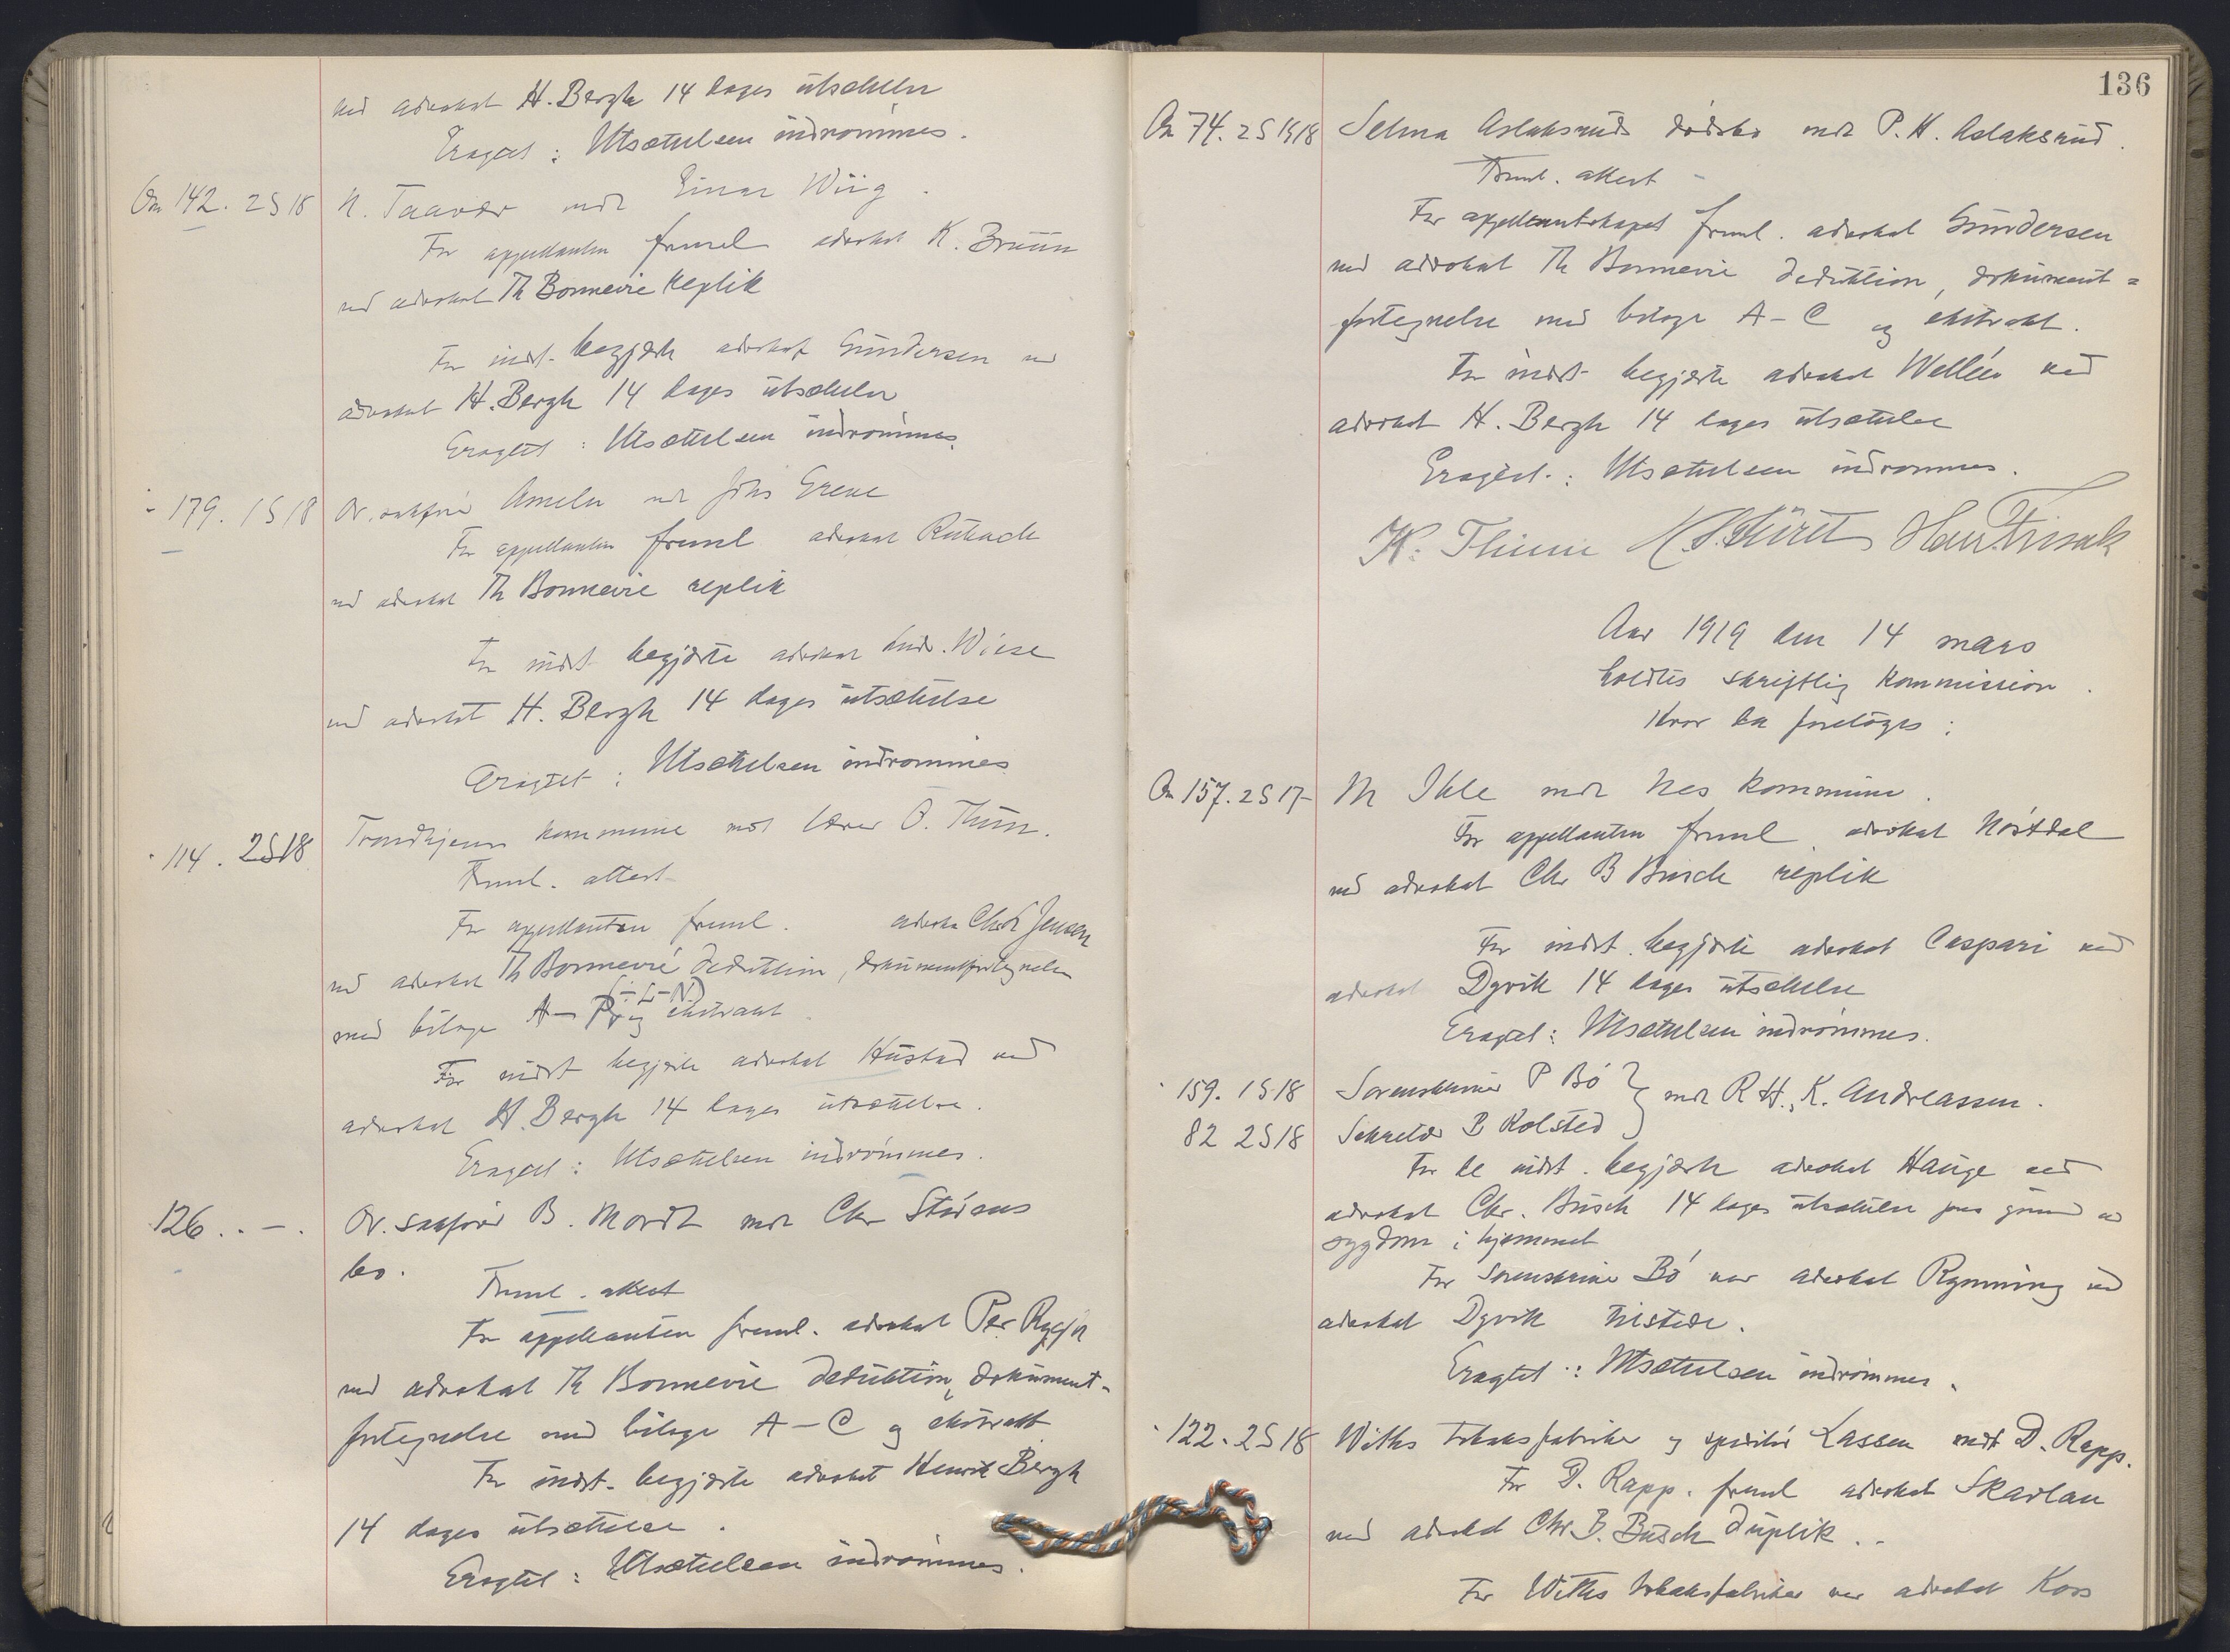 ved advokat H. Bergh 14 dages utsættelse
Eragtet: Utsættelsen indrømmes.
On 142. 2 S 18 N. Taaver mot Einar Wiig.
For appellanten freml advokat K. Bruun
ved advokat Th Bonnevie Replik
For indst. begjærte advokat Gundersen ved
advokat H. Bergh 14 dages utsættelse
Eragtet: Utsættelsen indrømmes.
" 179. 1 S 18 Or. sakfører Ameln mot Johs Greve
For appellanten freml advokat
ved advokat Th Bonnevie replik
For indst begjærte advokat Andr. Wiese
ved advokat H. Bergh 14 dages utsættelse
Eragtet: Utsættelsen indrømmes
" 114. 2 S 18 Trondhjems kommune mot lærer O. Thun.
Freml. attest
For appellanten freml. advokat Chr Jensen
ved advokat Th Bonnevie deduktion, dokumentfortegnelse
(÷ L-N)
med bilage A- og ekstrakt
For indst begjærte advokat Hustad ved
advokat H. Bergh 14 dages utsættelse.
Eragtet: Utsættelsen indrømmes.
" 126. . - . Or. sakfører B. Mordt mot Chr Støren
bo.
Freml. attest
For appellanten freml. advokat Per Rygh
ved advokat Th Bonnevie deduktion, dokument-
fortegnelse med bilage A-C og ekstrakt
For indst. begjærte advokat Henrik Bergh
14 dages utsættelse.
Eragtet: Utsættelsen indrømmes.
136
On 74. 2 S 18 Selma Aslaksruds dødsbo mot P. H. Aslaksrud.
Freml. attest -
For appellantskapet freml. advokat Gundersen
ved advokat Th Bonnevie deduktion, dokument=
fortegnelse med bilage A-C og ekstrakt.
For indst begjærte advokat Wellén ved
advokat H. Bergh 14 dages utsættelse
Eragtet: Utsættelsen indrømmes.
K. Thinn
Aar 1919 den 14 mars
holdtes skriftlig kommission.
Hvor da foretoges:
On 157. 2 S 17 M Ihle mot Nes kommune.
For appellanten freml. advokat Nøstdal
ved advokat Chr B Busch replik
For indst. begjærte advokat Caspari ved
advokat Dyvik 14 dages utsættelse
Eragtet: Utsættelsen indrømmes.
" 159. 1 S 18 Sorenskriver P Bø } mot R. H. K. Andreassen.
82 2 S 18 Sekretær B Kolsted
For de indst. begjærte advokat Hauge ved
advokat Chr. Busch 14 dages utsættelse paa grund av
sygdom i hjemmet
For sorenskriver Bø var advokat Rynning ved
advokat Dyvik tilstede.
Eragtet: Utsættelsen indrømmes.
" 122. 2 S 18 Withs tobaksfabrikker og speditør Lassen mot D. Rapp.
For D. Rapp. freml advokat Skavlan
ved advokat Chr. B. Busch duplik..
For Withs tobaksfabrikker var advokat Koss